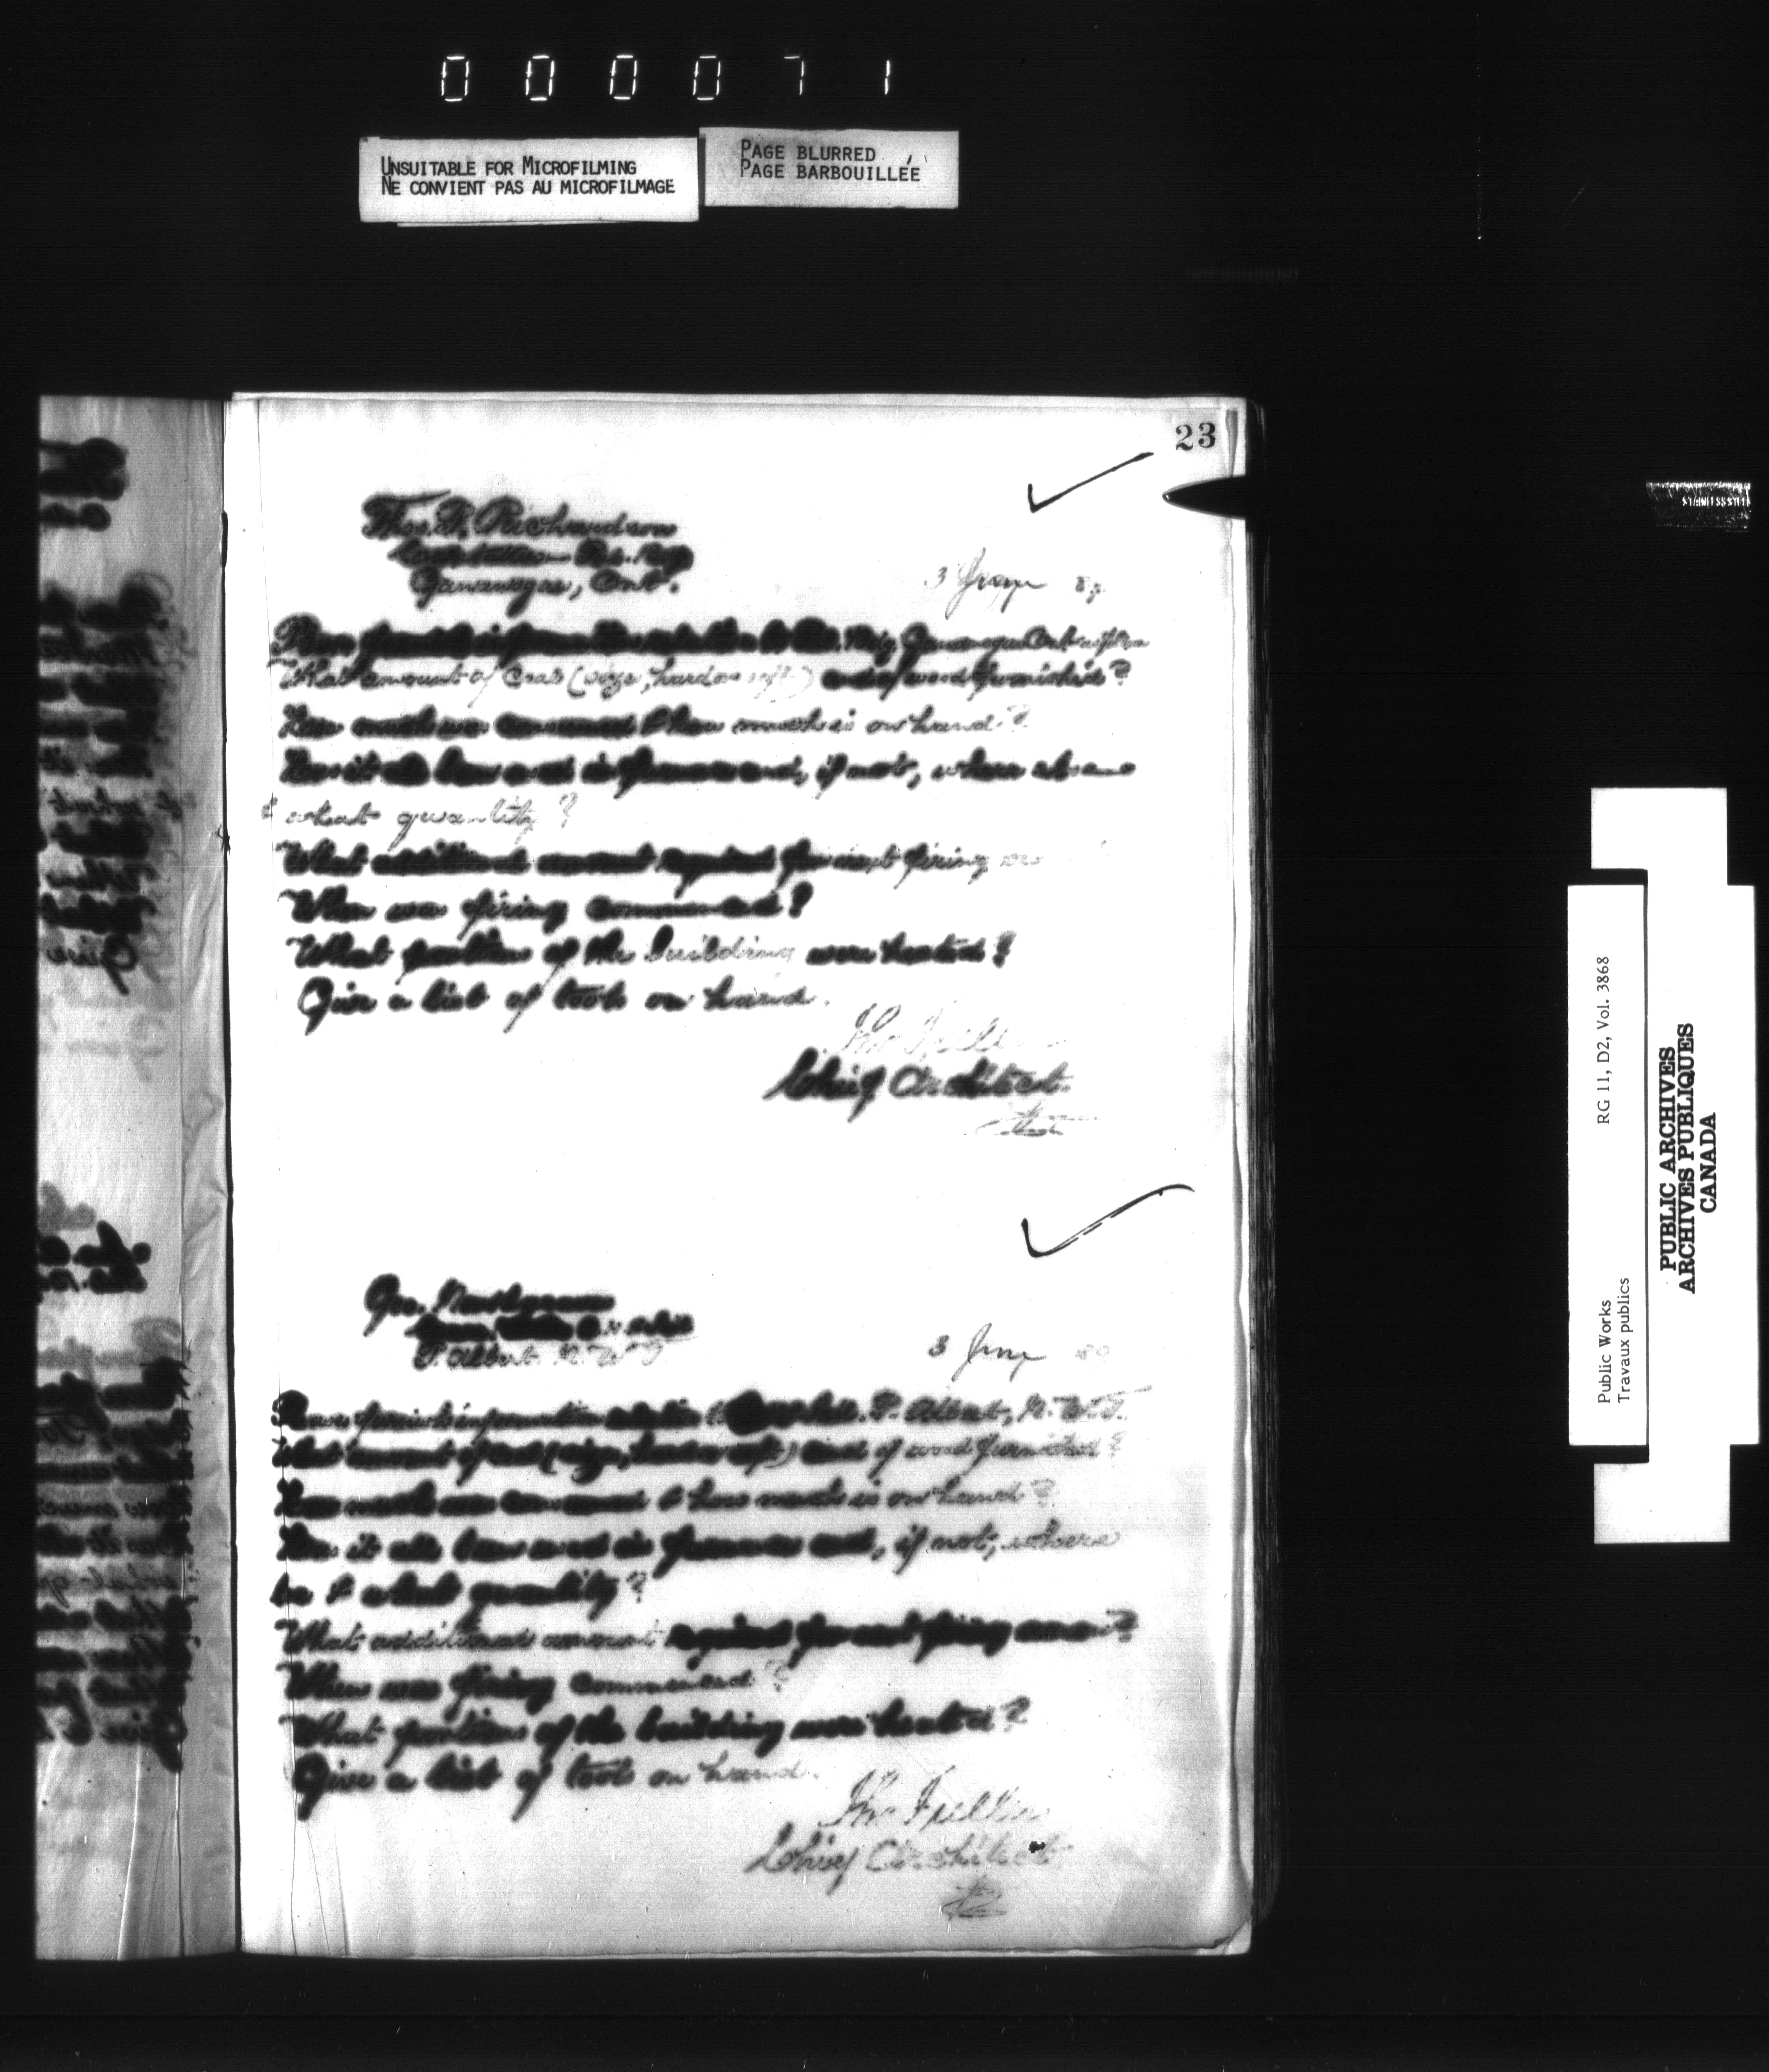 000071
UNSUITABLE FOR MICROFILMING
NE CONVIENT PAS AU MICROFILMAGE
PAGE BLURRED
PAGE BARBOUILLÉE
23
Thos. Richardson
Pb. Bdg
Gananoque, Ont.
3 June 89
Please furnish information relative to Pb. Bdg. Gananoque Ont.
What amount of Coal (size, hard or soft) and of wood furnished?
How much was consumed & how much is on hand?
Has it all been used in furnaces and, if not, where
& what quantity?
What additional amount required for next firing
When was firing commenced?
What portions of the building were heated?
Give a list of tools on hand.
Thos Fuller
Chief Architect.
Geo.
P. Albert. N.W.T.
3 June 89
Please furnish information relative to P. Albert, N.W.T.
What amount of coal (size, hard or soft) and of wood furnished?
How much was consumed & how much is on hand?
Has it all been used in furnaces and, if not, where
& what quantity?
What additional amount required for next firing season?
When was firing commenced?
What portions of the building were heated?
Give a list of tools on hand.
Thos Fuller
Chief Architect.
Public Works
Travaux publics
RG 11, D2, Vol. 3868
PUBLIC ARCHIVES
ARCHIVES PUBLIQUES
CANADA